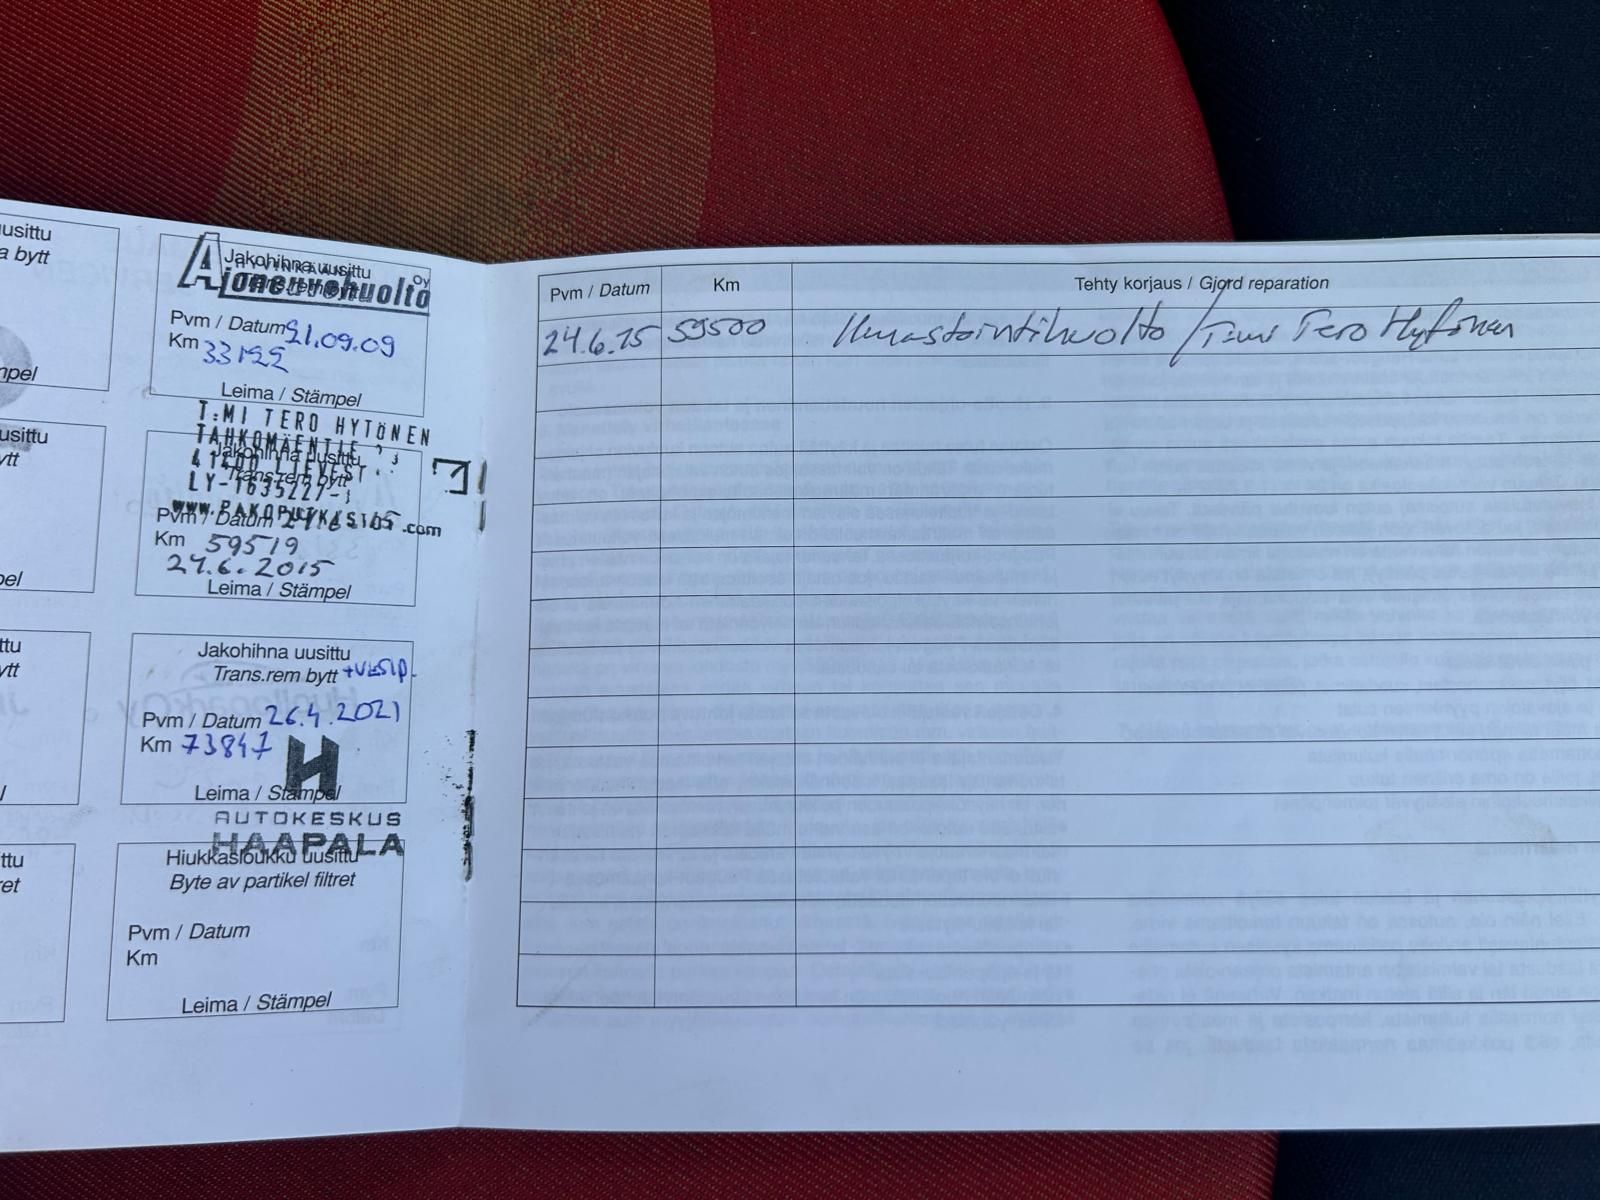 uusittu
a bytt
mpel
usittu
ytt
pel
ttu
ytt
l
ttu
ret
HYVINKÄÄN
Ajoneuvohuolto Oy
Jakohihna uusittu
Trans.rem bytt
Pvm / Datum 21.09.09
Km 33122
Leima / Stämpel
T:MI TERO HYTÖNEN
TAHKOMÄENTIE
41400 LIEVEST
Jakohihna uusittu
Trans.rem bytt
LY-1635227-
WWW.PAKOPUTKASTOS.com
Pvm / Datum 24.6.2015
Km 59519
24.6.2015
Leima / Stämpel
Jakohihna uusittu
Trans.rem bytt +VESIP.
Pvm / Datum 26.4.2021
Km 73847
H
Leima / Stämpel
AUTOKESKUS
HAAPALA
Hiukkasloukku uusittu
Byte av partikel filtret
Pvm / Datum
Km
Leima / Stämpel
Pvm / Datum Km Tehty korjaus / Gjord reparation
24.6.15 59500 Ilmastointihuolto / T:mi Tero Hytönen